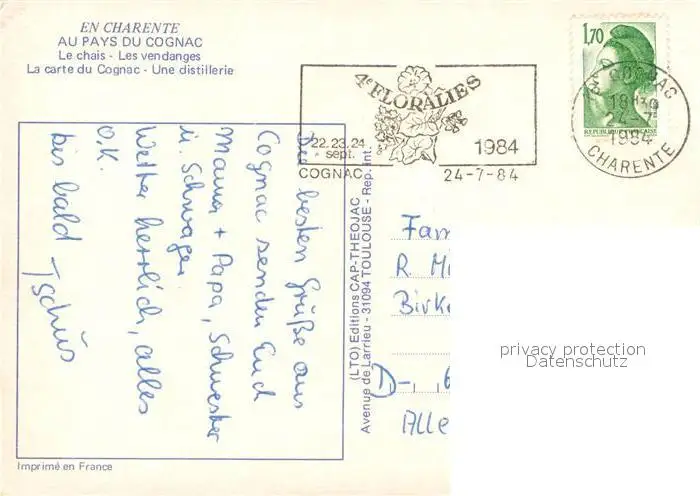 EN CHARENTE
AU PAYS DU COGNAC
Le chais - Les vendanges
La carte du Cognac - Une distillerie
4e FLORALIES
22.23.24
sept.
1984
COGNAC
24-7-84
1,70
REPUBLIQUE FRANÇAISE
COGNAC
18H30
24-7
1984
CHARENTE
Die besten Grüße aus
Cognac senden Euch
Mama + Papa, Schwester
u. Schwager.
Wetter herrlich, alles
O.K.
bis bald Tschüs
(LTO) Editions CAP-THEOJAC
Avenue de Larrieu - 31094 TOULOUSE - Rep. Int.
Fam
R. M
Birk
D-
Alle
privacy protection
Datenschutz
Imprimé en France